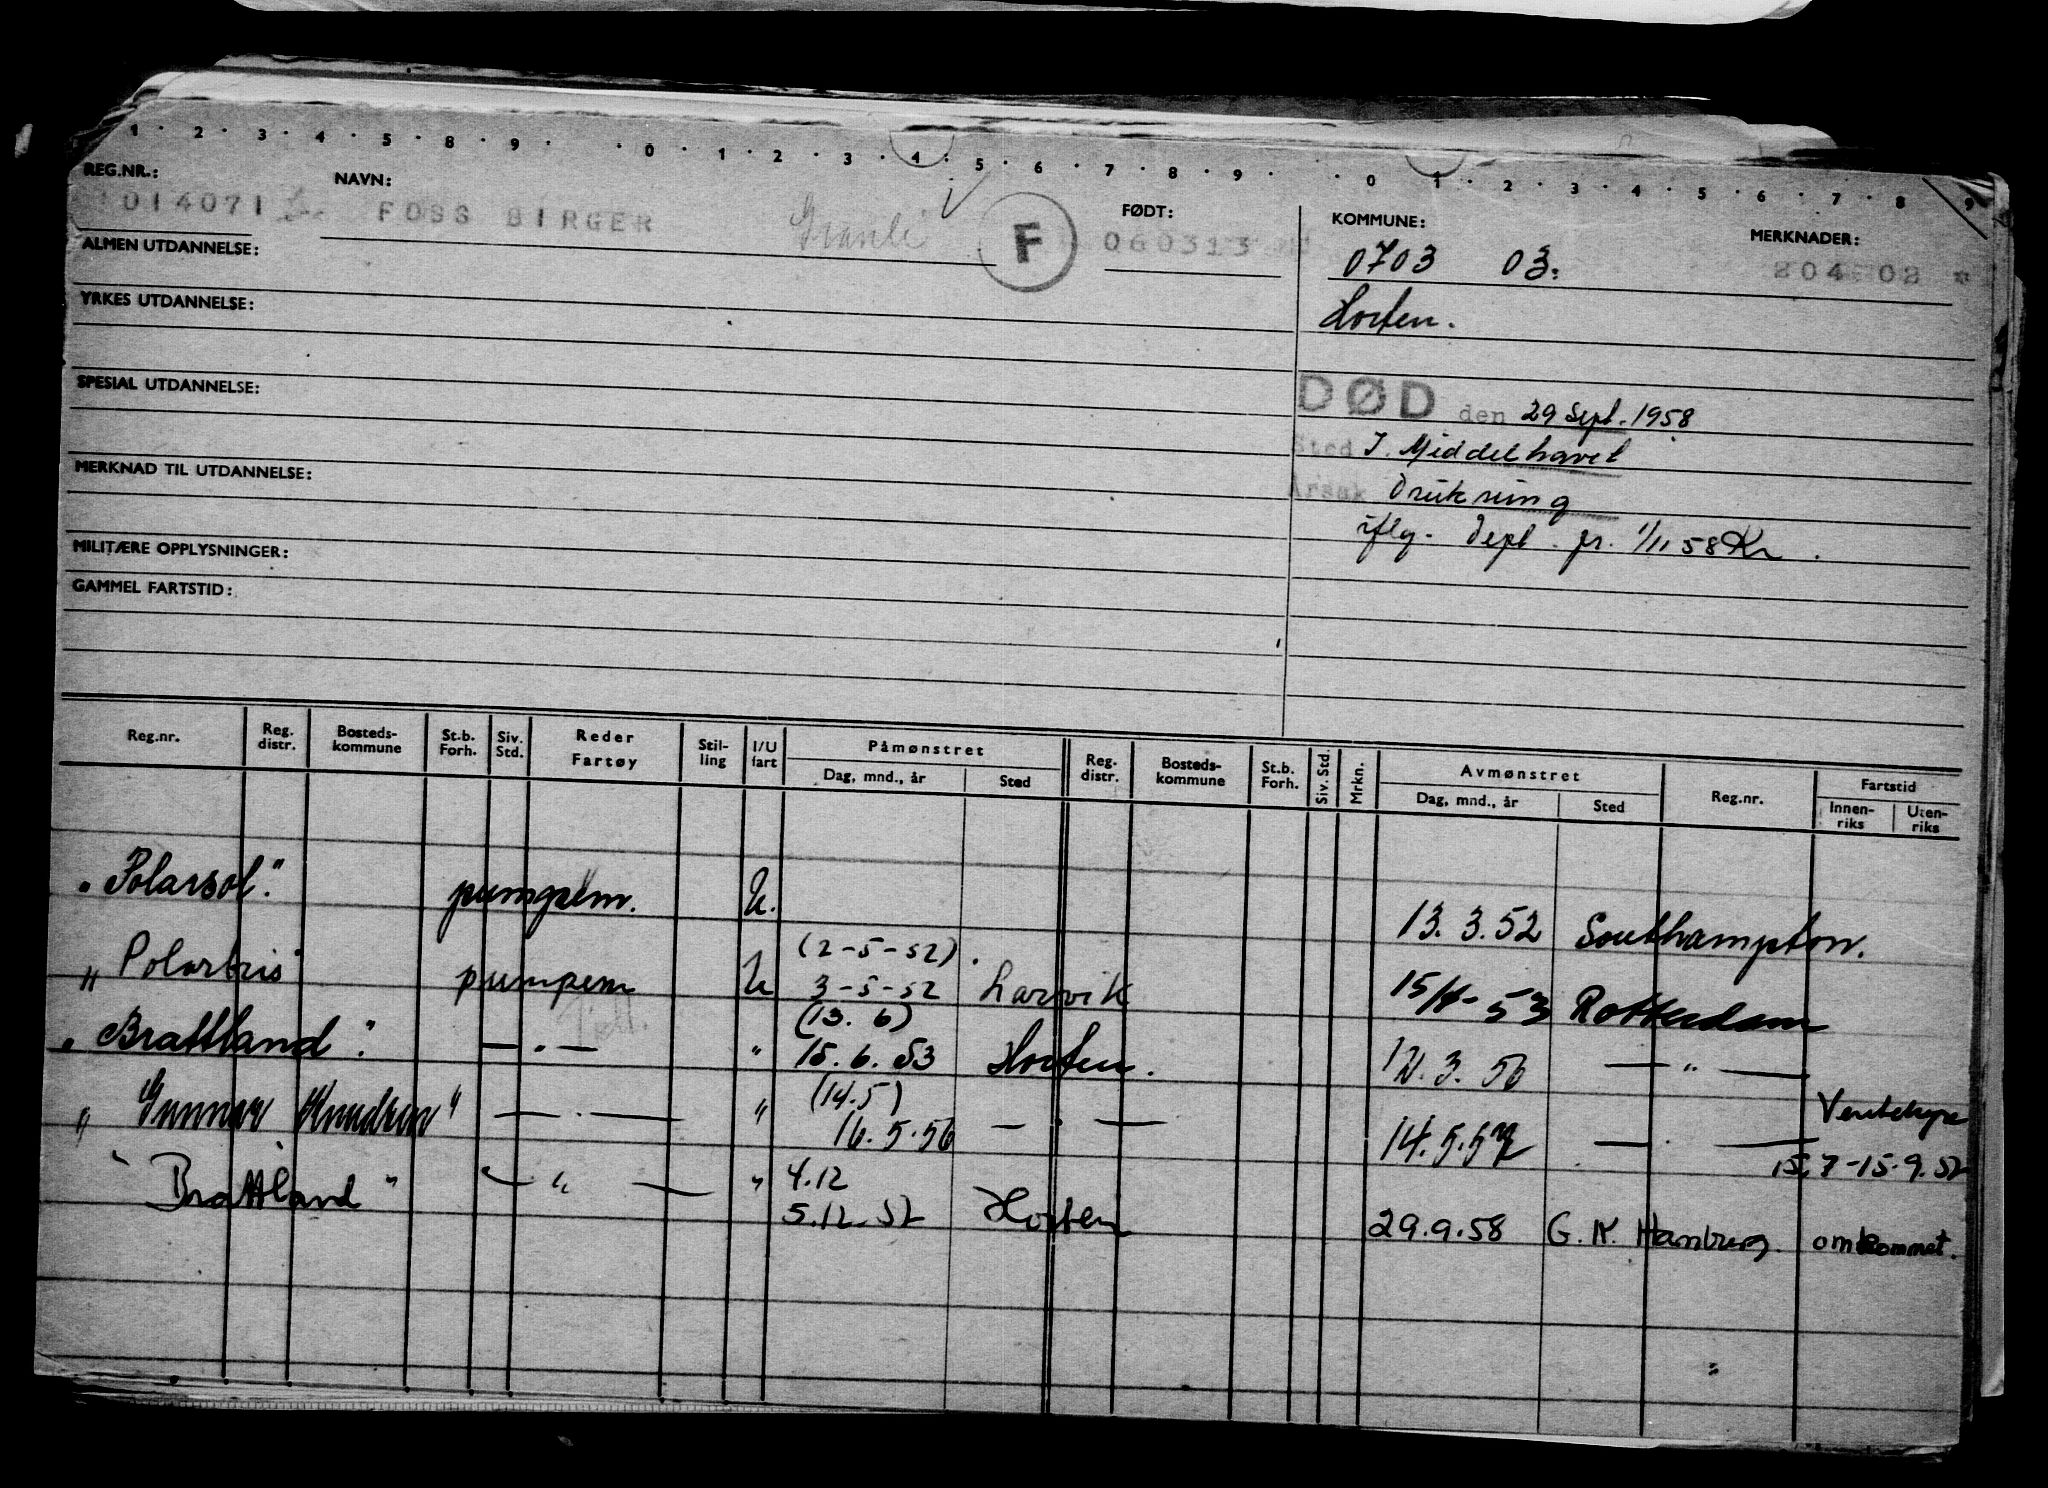 1 · 2 · 3 · 4 · 5 · 8 · 9 · · 0 · 1 · 2 · 3 · 4 · 5 · 6 · 7 · 8 · 9 · · 0 · 1 · 2 · 3 · 4 · 5 · 6 · 7 · 8 · 9
REG.NR.: NAVN: FØDT: KOMMUNE: MERKNADER:
014071 FOSS BIRGER Granli F 060313 0703 03: 804 02
ALMEN UTDANNELSE:
Horten.
YRKES UTDANNELSE:
SPESIAL UTDANNELSE:
DØD den 29 Sept. 1958
Sted I. Middelhavet
MERKNAD TIL UTDANNELSE:
Årsak Drukning
iflg. Dept. pr. 1/11 58 Kr.
MILITÆRE OPPLYSNINGER:
GAMMEL FARTSTID:
Reg.nr. Reg. distr. Bosteds-kommune St.b. Forh. Siv. Std. Reder Fartøy Stil-ling I/U fart Påmønstret Reg. distr. Bosteds-kommune St.b. Forh. Siv. Std. Mrkn. Avmønstret Reg.nr. Fartstid
Dag, mnd., år Sted Dag, mnd., år Sted Innen-riks Uten-riks
"Polarsol." pumpem. U. 13. 3. 52 Southampton.
(2-5-52).
"Polarbris" pumpem U 3-5-52 Larvik 15/4-53 Rotterdam
(13. 6)
"Brattland". — " — " 15. 6. 53 Horten. 12. 3. 56 — " —
(14.5)
"Gunnar Knudsen" — " — " 16. 5. 56 — " — 14. 5. 57 — " —
15.7-15.9.52
"Brattland" — " — " 4.12
5.12. 57 Horten 29.9.58 G. K. Hamburg. omkommet.